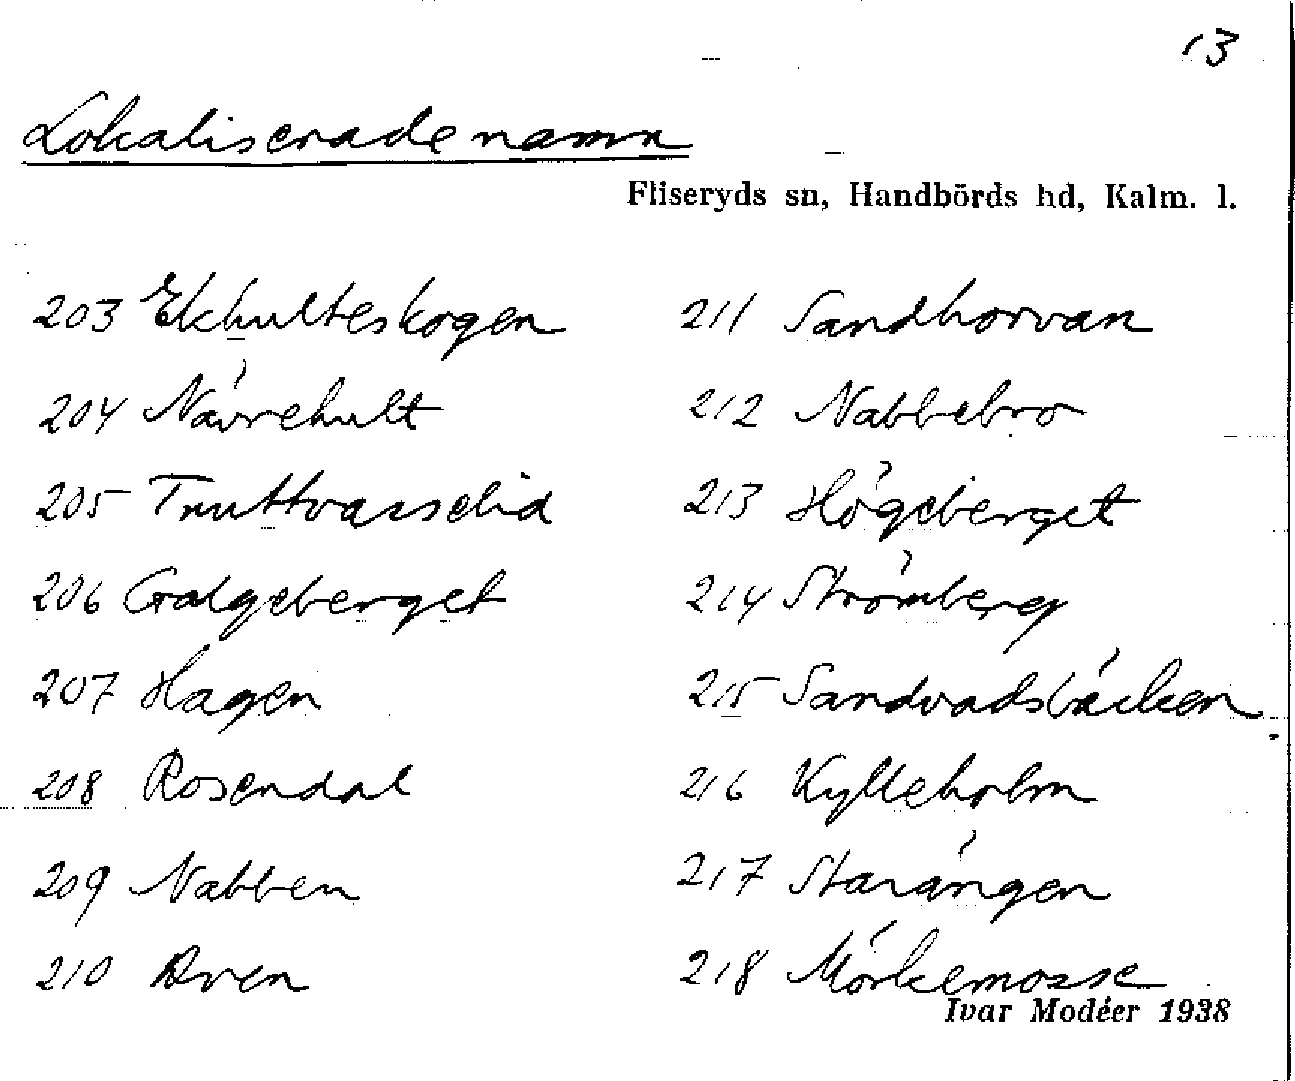 13
Lokaliserade namn
Fliseryds sn, Handbörds hd, Kalm. l.
203 Ekhulteskogen
204 Návrehult
205 Truttvasselid
206 Galgeberget
207 Hagen
208 Rosendal
209 Nabben
210 Aven
211 Sandhorvan
212 Nabbebro
213 Högeberget
214 Strömberg
215 Sandvadsbäcken
216 Kylleholm
217 Starängen
218 Mörkemosse
Ivar Modéer 1938